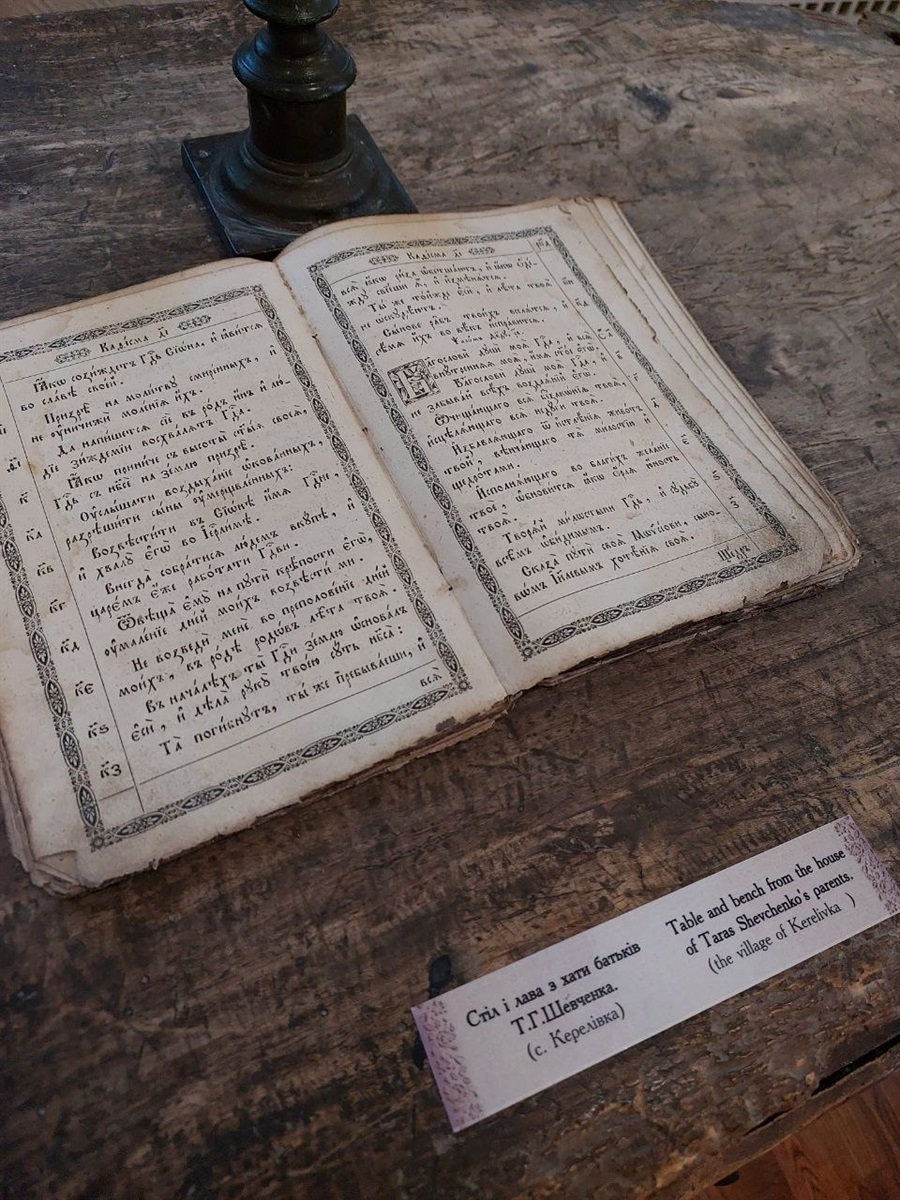 Каѳісма д҃і
Ꙗ҆́кѡ сози́ждетъ Гдⷭ҇ь Сїѡ́на, и҆ ꙗ҆ви́тсѧ
во сла́вѣ свое́й.
Призрѣ̀ на моли́твꙋ смире́нныхъ, и҆
не ᲂу҆ничижѝ моле́нїѧ и҆́хъ.
Да напи́шетсѧ сїѐ въ ро́дъ и҆́нъ, и҆ лю́-
дїе зи́ждемїи восхва́лѧтъ Гдⷭ҇а.
Ꙗ҆́кѡ прини́че съ высоты̀ ст҃ы́ѧ своеѧ̀,
Гдⷭ҇ь съ нб҃сѐ на зе́млю призрѣ̀.
к҃
Оу҆слы́шати воздыха́нїе ѡ҆кова́нныхъ,
разрѣши́ти сы́ны ᲂу҆мерщвле́нныхъ:
к҃а
Возвѣсти́ти въ Сїѡ́нѣ и҆́мѧ Гдⷭ҇не,
и҆ хвалꙋ̀ є҆гѡ̀ во І҆ерⷭ҇ли́мѣ.
к҃в
Внегда̀ собра́тисѧ лю́демъ вкꙋ́пѣ, и҆
царє́мъ є҆́же рабо́тати Гдⷭ҇ви.
к҃г
Ѿвѣща̀ є҆мꙋ̀ на пꙋтѝ крѣ́пости є҆гѡ̀,
ᲂу҆мале́нїе дні́й мои́хъ возвѣстѝ ми.
к҃д
Не возведѝ менѐ во преполове́нїе дні́й
мои́хъ, въ ро́дѣ родѡ́въ лѣ̑та твоѧ̑.
к҃є
Въ нача́лѣхъ ты̀ Гдⷭ҇и зе́млю ѡ҆снова́лъ
є҆сѝ, и҆ дѣла̀ рꙋкꙋ̀ твоє́ю сꙋ́ть нб҃са̀:
к҃ѕ
Та̑ поги́бнꙋтъ, ты́ же пребыва́еши, и҆
к҃з
всѧ̑
Каѳісма д҃і
всѧ̑ ꙗ҆́кѡ ри́за ѡ҆бетша́ютъ, и҆ ꙗ҆́кѡ ѻ҆де́-
ждꙋ свїе́ши ѧ҆̀, и҆ и҆змѣнѧ́тсѧ.
Ты́ же то́йжде є҆сѝ, и҆ лѣ̑та твоѧ̑
не ѡ҆скꙋдѣ́ютъ.
Сы́нове ра̑бъ твои́хъ вселѧ́тсѧ, и҆
сѣ́мѧ и҆́хъ во вѣ́къ и҆спра́витсѧ.
Благословѝ дꙋшѐ моѧ̀ Гдⷭ҇а, и҆ всѧ̑
внꙋ́трєннѧѧ моѧ̑, и҆́мѧ ст҃о́е є҆гѡ̀.
Благословѝ дꙋшѐ моѧ̀ Гдⷭ҇а, и҆
не забыва́й всѣ́хъ воздаѧ́нїй є҆гѡ̀.
Ѡ҆чища́ющаго всѧ̑ беззакѡ́нїѧ твоѧ̑,
и҆сцѣлѧ́ющаго всѧ̑ недꙋ́ги твоѧ̑.
И҆збавлѧ́ющаго ѿ и҆стлѣ́нїѧ живо́тъ
тво́й, вѣнча́ющаго тѧ̀ ми́лостїю и҆
щедро́тами.
И҆сполнѧ́ющаго во благи́хъ жела́нїе
твоѐ, ѡ҆бнови́тсѧ ꙗ҆́кѡ ѻ҆́рлѧ ю҆́ность
твоѧ̀.
Творѧ́й ми́лѡстыни Гдⷭ҇ь, и҆ сꙋдбꙋ̀
всѣ́мъ ѡ҆би̑димымъ.
Сказа̀ пꙋти̑ своѧ̑ Мѡѷсе́ови, сыно-
вѡ́мъ І҆и҃лєвымъ хотѣ̑нїѧ своѧ̑.
Ще́дръ
Стіл і лава з хати батьків
Т.Г.Шевченка.
(с. Керелівка)
Table and bench from the house
of Taras Shevchenko's parents.
(the village of Kerelivka )